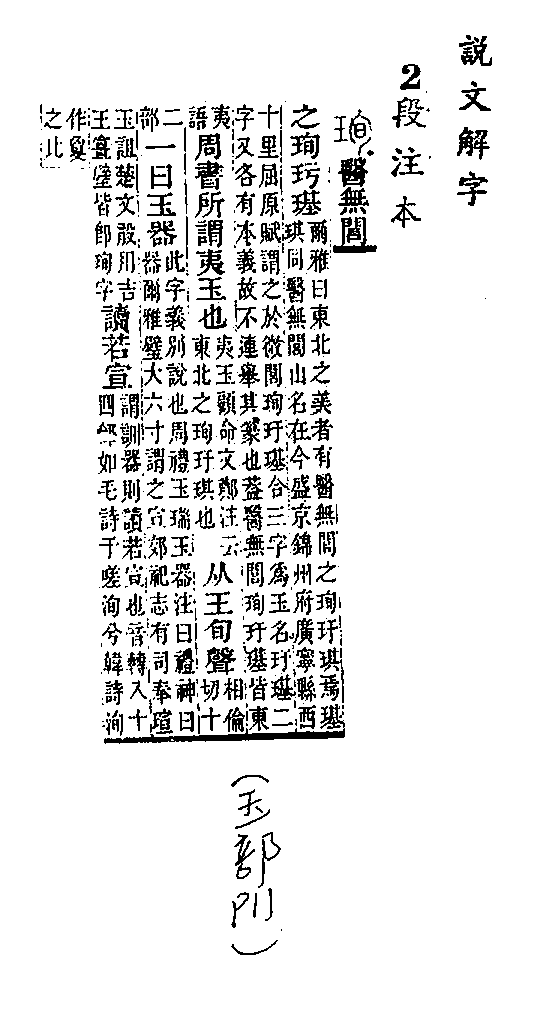 説文解字
2段注本
珣 醫無閭
之珣玗璂 爾雅曰東北之美者有醫無閭之珣玗琪焉璂
琪同醫無閭山名在今盛京錦州府廣寧縣西
十里屈原賦謂之於微閭珣玗璂合三字爲玉名玗璂二
字又各有本義故不連舉其篆也葢醫無閭珣玗璂皆東
夷語 周書所謂夷玉也 夷玉顧命文鄭注云東北之珣玗琪也 从王旬聲 相倫切十
二部 一曰玉器 此字義別說也周禮玉瑞玉器注曰禮神曰
器爾雅璧大六寸謂之宣郊祀志有司奉瑄
玉詛楚文敢用吉王亶璧皆卽珣字 讀若宣 謂訓器則讀若宣也音轉入十
四部如毛詩于嗟洵兮韓詩洵
作敻之比
(玉部P11)